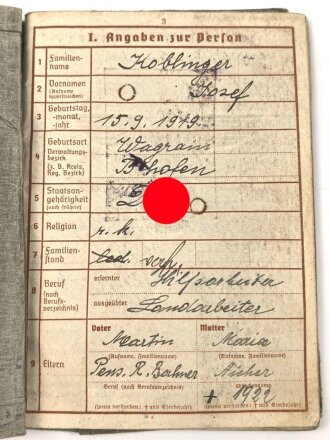 3
I. Angaben zur Person
1 Familien-
name
Koblinger
2 Vornamen
(Rufname
unterstreichen)
Josef
3 Geburtstag,
-monat,
-jahr
15.9.1919.
4 Geburtsort
Verwaltungs-
bezirk
(z. B. Kreis,
Reg. Bezirk)
Wagrain
B'hofen
5 Staatsan-
gehörigkeit
(auch frühere)
D
6 Religion
r. k.
7 Familien-
stand
led. verh.
8 Beruf
(nach
Berufs-
verzeichnis)
erlernter
Hilfsarbeiter
ausgeübter
Landarbeiter
9 Eltern
Vater
Mutter
Martin
Maria
(Rufname, Familienname)
(Rufname, Familienname)
Pens. R.
Beruf (nach Berufsverzeichnis)
+ 1922
(wenn verstorben: † und Sterbejahr)
(wenn verstorben: † und Sterbejahr)